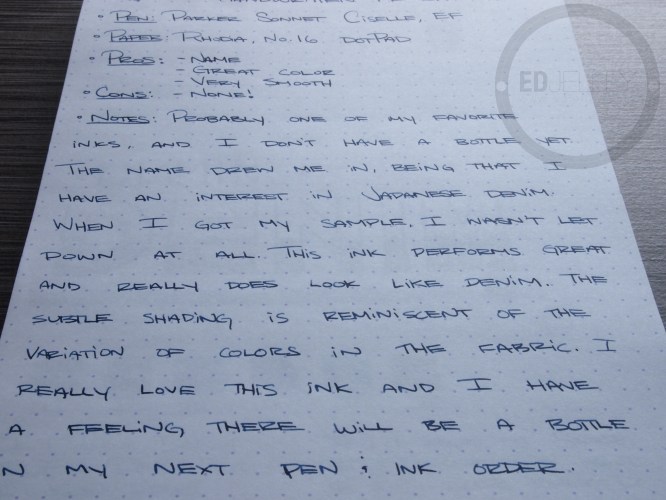 HANDWRITTEN
• PEN: PARKER SONNET CISELLE, EF
• PAPER: RHODIA, NO. 16 DOTPAD
• PROS: - NAME
- GREAT COLOR
- VERY SMOOTH
• CONS: - NONE!
• NOTES: PROBABLY ONE OF MY FAVORITE
INKS, AND I DON'T HAVE A BOTTLE YET.
THE NAME DREW ME IN, BEING THAT I
HAVE AN INTEREST IN JAPANESE DENIM.
WHEN I GOT MY SAMPLE, I WASN'T LET
DOWN AT ALL. THIS INK PERFORMS GREAT
AND REALLY DOES LOOK LIKE DENIM. THE
SUBTLE SHADING IS REMINISCENT OF THE
VARIATION OF COLORS IN THE FABRIC. I
REALLY LOVE THIS INK AND I HAVE
A FEELING THERE WILL BE A BOTTLE
N MY NEXT PEN & INK ORDER.